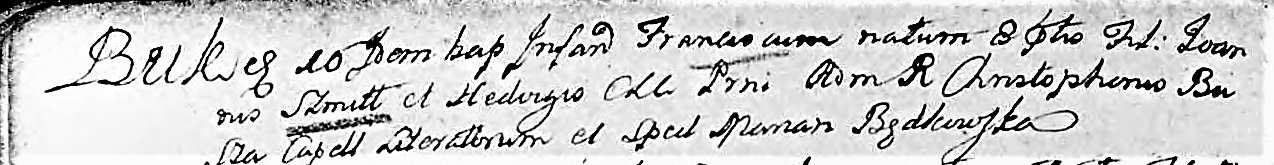 Bukieg 10 Idem bap Infand Franciscum natum 8 hujus Fil: Joan
nis Szmitt et Hedvigis CLL Prni Adm R Christophorus Bu
Sza Capell Literatorum et Spect Marian Bydkowska